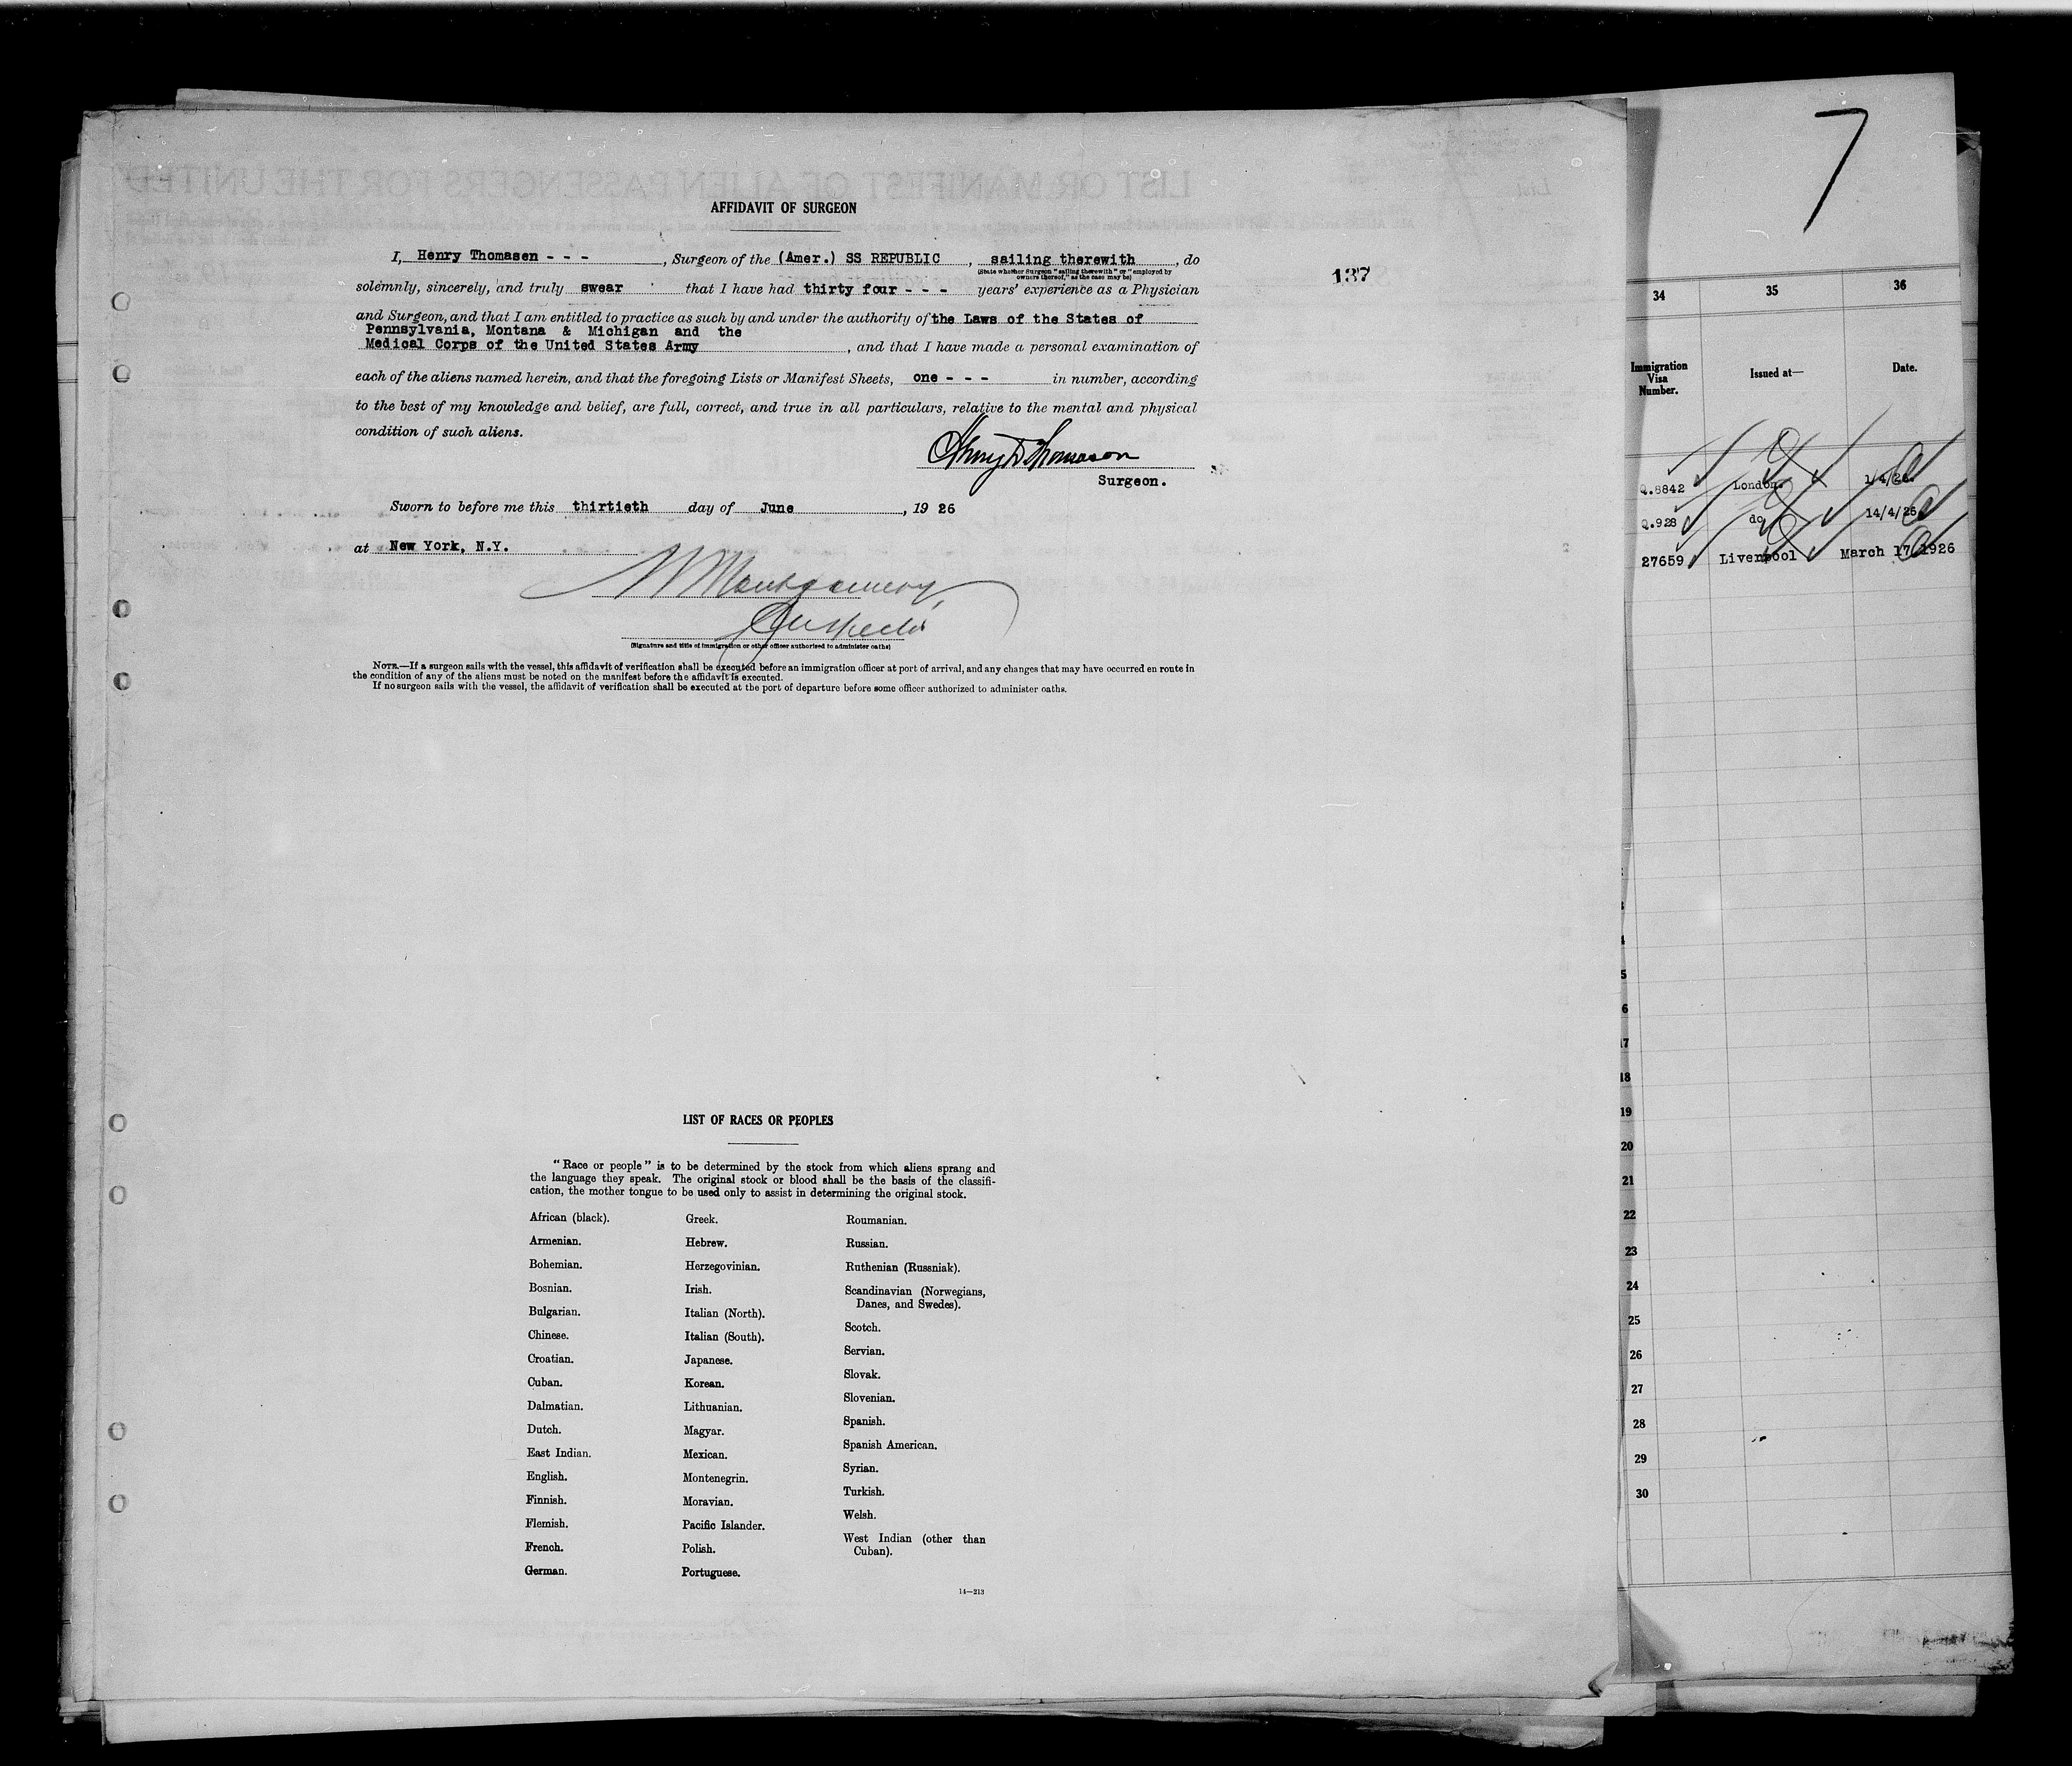 7
AFFIDAVIT OF SURGEON
I, Henry Thomasen - - - , Surgeon of the (Amer.) SS REPUBLIC , sailing therewith , do
(State whether Surgeon "sailing therewith" or "employed by
owners thereof," as the case may be)
137
solemnly, sincerely, and truly swear that I have had thirty four - - - years' experience as a Physician
and Surgeon, and that I am entitled to practice as such by and under the authority of the Laws of the States of
Pennsylvania, Montana & Michigan and the
Medical Corps of the United States Army , and that I have made a personal examination of
each of the aliens named herein, and that the foregoing Lists or Manifest Sheets, one - - - in number, according
to the best of my knowledge and belief, are full, correct, and true in all particulars, relative to the mental and physical
condition of such aliens.
Henry D Thomason
Surgeon.
Sworn to before me this thirtieth day of June , 19 26
at New York, N.Y.
Montgomery
(Signature and title of immigration or other officer authorized to administer oaths)
NOTE.—If a surgeon sails with the vessel, this affidavit of verification shall be executed before an immigration officer at port of arrival, and any changes that may have occurred en route in
the condition of any of the aliens must be noted on the manifest before the affidavit is executed.
If no surgeon sails with the vessel, the affidavit of verification shall be executed at the port of departure before some officer authorized to administer oaths.
LIST OF RACES OR PEOPLES
"Race or people" is to be determined by the stock from which aliens sprang and
the language they speak. The original stock or blood shall be the basis of the classifi-
cation, the mother tongue to be used only to assist in determining the original stock.
African (black).
Armenian.
Bohemian.
Bosnian.
Bulgarian.
Chinese.
Croatian.
Cuban.
Dalmatian.
Dutch.
East Indian.
English.
Finnish.
Flemish.
French.
German.
Greek.
Hebrew.
Herzegovinian.
Irish.
Italian (North).
Italian (South).
Japanese.
Korean.
Lithuanian.
Magyar.
Mexican.
Montenegrin.
Moravian.
Pacific Islander.
Polish.
Portuguese.
Roumanian.
Russian.
Ruthenian (Russniak).
Scandinavian (Norwegians,
Danes, and Swedes).
Scotch.
Servian.
Slovak.
Slovenian.
Spanish.
Spanish American.
Syrian.
Turkish.
Welsh.
West Indian (other than
Cuban).
14—213
34 35 36
Immigration
Visa
Number.
Issued at—
Date.
Q.8842 London. 1/4/26.
Q.928 do 14/4/26
27659 Liverpool March 17 1926
18
19
20
21
22
23
24
25
26
27
28
29
30